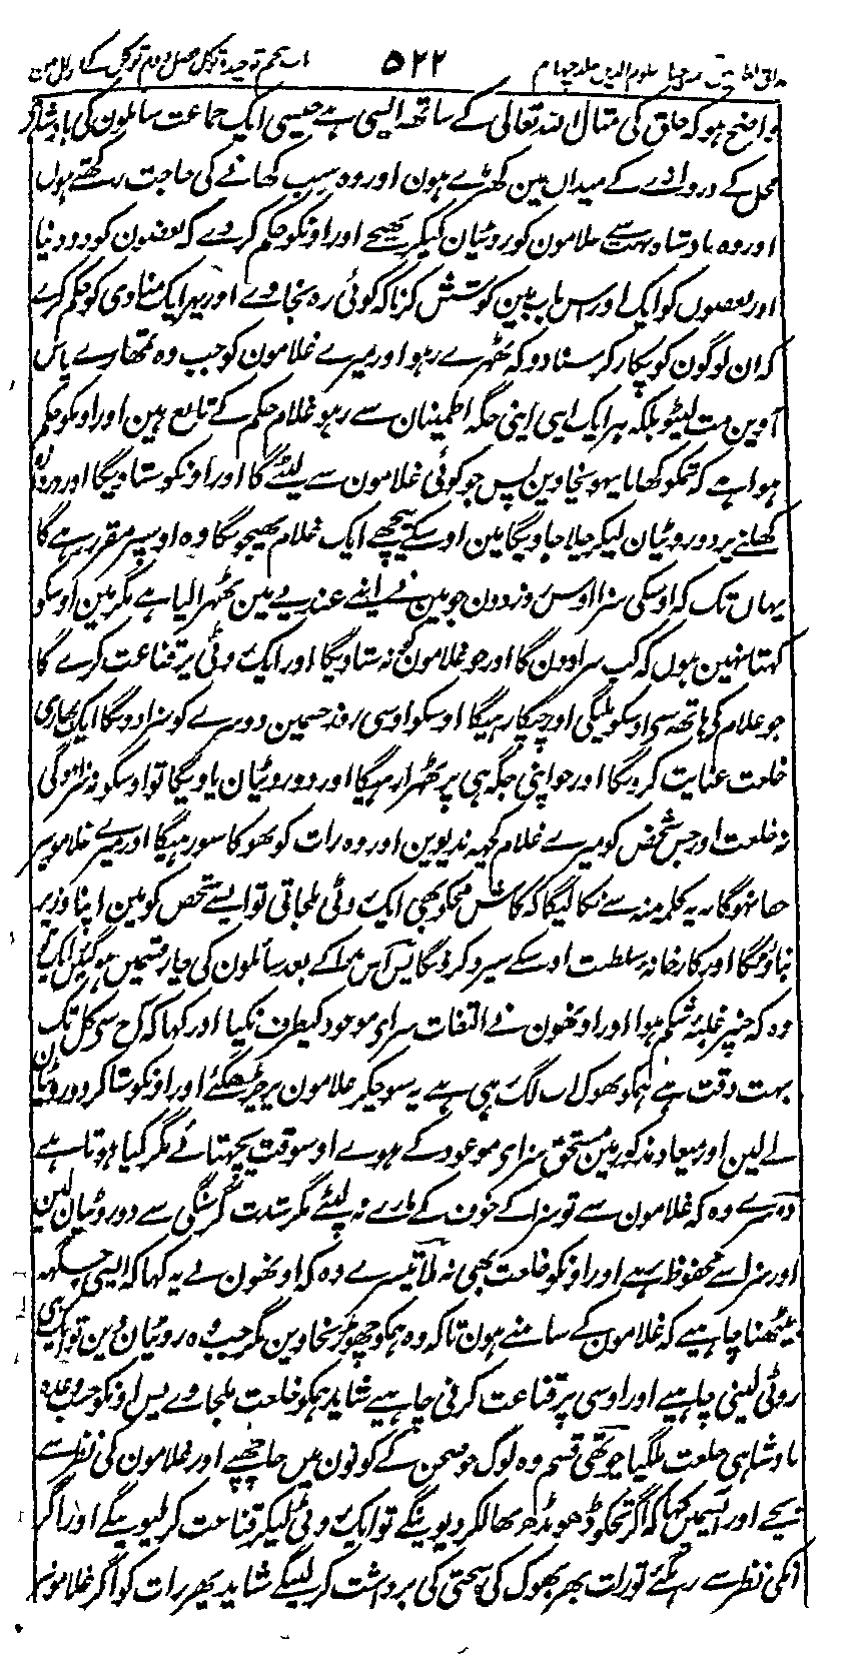 مذاق العارفین ترجمہ احیاء علوم الدین جلد چہارم ۵۲۲ باب پنجم توحید و توکل فصل دوم توکل کے اعمال میں
واضح ہو کہ خلق کی مثال اللہ تعالی کے ساتھہ ایسی ہے جیسی ایک جماعت سائلون کی بادشاہ کے
محل کے دروازے کے میدان مین کھڑے ہون اور وہ سب کھانے کی حاجت رکھتے ہون
اور وہ بادشاہ بہت سے غلامون کو روٹیان لیکر بھیجے اور اونکو حکم کردے کہ بعضون کو دو دو دینا
اور بعضون کو ایک اور اس باب مین کوشش کرنا کہ کوئی رہ نجاوے اور پہر ایک منادی کو حکم کرے
کہ ان لوگون کو پکار کر سنا دو کہ ٹھہرے رہو اور میرے غلامون کو جب وہ تمھارے پاس
آوین مت لپٹو بلکہ ہر ایک اپنی اپنی جگہ اطمینان سے رہو غلام حکم کے تابع ہین اور اونکو حکم
ہوا ہے کہ تمکو کھانا پہونچاوین پس جو کوئی غلامون سے لپٹے گا اور اونکو ستاویگا اور دروازہ
کھلنے پر دو روٹیان لیکر چلا جاویگا مین اوسکے پیچھے ایک غلام بھیجونگا وہ اوسپر مقرر رہے گا
یہاں تک کہ اوسکی سزا اوس روز دون جو مین نے اپنے عندیے مین ٹھہرا لیا ہے مگر مین اوسکو
کہتا نہین ہوں کہ کب سزا دون گا اور جو غلامون کو نہ ستاویگا اور ایک روٹی پر قناعت کرے گا
جو غلام کی ہاتھہ سی اوسکو ملیگی اور چپکا رہیگا اوسکو اوسی روز جسمین دوسرے کو سزا دونگا ایک بھاری
خلعت عنایت کرونگا اور جو اپنی جگہ ہی پر ٹھہرا رہیگا اور دو روٹیان پاویگا تو اوسکو نہ سزا ہوگی
نہ خلعت اور جس شخص کو میرے غلام کچہہ ندیوین اور وہ رات کو بھوکا سو رہیگا اور میرے غلامونپر
خفا نہوگا نہ یہ کلمہ منہ سے نکالیگا کہ کاش مجکو بھی ایک روٹی ملجاتی تو ایسے شخص کو مین اپنا وزیر
بناؤنگا اور کارخانہ سلطنت اوسکے سپرد کردونگا پس اس ندا کے بعد سائلون کی چار قسمیں ہوگئیں ایک تو
وہ کہ جنپر غلبۂ شکم ہوا اور اونھون نے التفات سزای موعود کیطرف نکیا اور کہا کہ آج سی کل تک
بہت وقت ہے ہمکو بھوک اب لگ رہی ہے یہ سوچکر غلامون پر چڑھگئے اور اونکو ستا کر دو روٹیان
لے لین اور میعاد مذکور مین مستحق سزای موعود کے ہوے اوسوقت پچھتائے مگر کیا ہوتا ہے
دوسرے وہ کہ غلامون سے تو سزا کے خوف کے مارے نہ لپٹے مگر شدت گرسنگی سے دو روٹیان لین
اور سزا سے محفوظ رہے اور اونکو خلعت بھی نہ ملا تیسرے وہ کہ اونھون نے یہ کہا کہ ایسی جگہہ
بیٹھنا چاہیے کہ غلامون کے سامنے ہون تاکہ وہ ہمکو چھوڑ نجاوین مگر جب وہ روٹیان دین تو ایک ہی
روٹی لینی چاہیے اور اوسی پر قناعت کرنی چاہیے شاید ہمکو خلعت ملجاوے پس اونکو حسب وعدہ
بادشاہی خلعت ملگیا چوتھی قسم وہ لوگ جو صحن کے کونون میں جا چھپے اور غلامون کی نظر سے
بچے اور آپسمیں کہا کہ اگر ہمکو ڈھونڈھ بھالکر دیوینگے تو ایک روٹی لیکر قناعت کر لیوینگے اور اگر
اونکی نظر سے رہگئے تو رات بھر بھوک کی سختی کی برداشت کر لینگے شاید پھر رات کو اگر غلامونپر